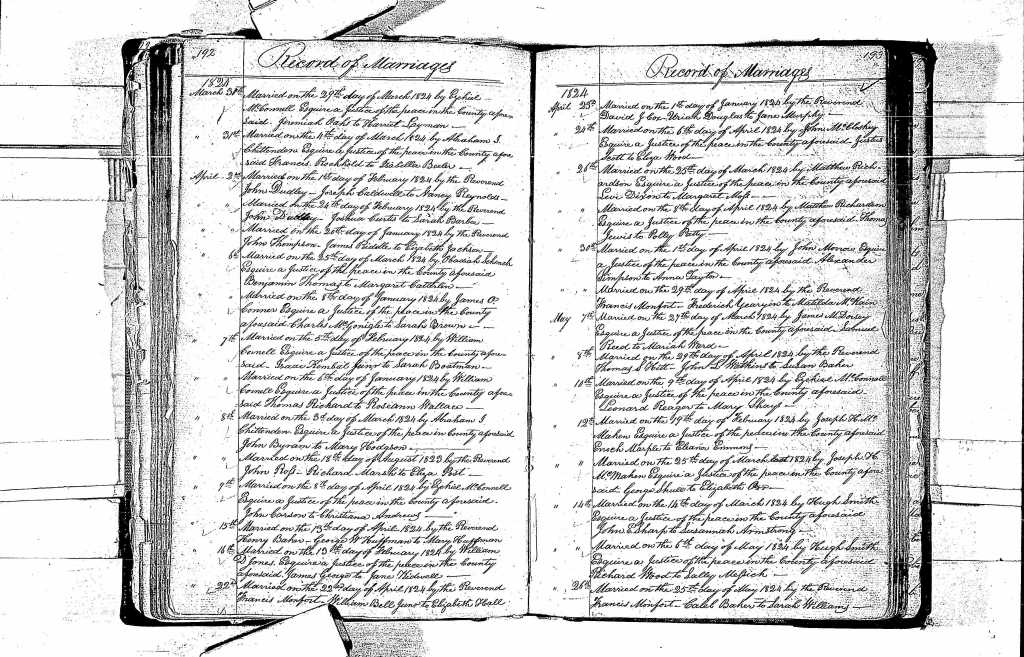 192
Record of Marriages
1824
March 31st Married on the 29th day of March 1824 by Ezekiel
McConnell Esquire a Justice of the peace in the County afore-
said. Jeremiah to Harriet Layman
" 31st Married on the 4th day of March 1824 by Abraham I.
Chittenden Esquire a Justice of the peace in the County afore
said Francis Rockhold to Butler
April 2nd Married on the 1st day of February 1824 by the Reverend
John Dudley - Joseph Caldwell to Nancy Reynolds -
" Married on the 24th day of February 1824 by the Reverend
John Dudley - Joshua Curtis to Sarah
" Married on the 20th day of January 1824 by the Reverend
John Thompson - James Riddle to Elizabeth Jackson -
" 6th Married on the 25th day of March 1824 by
Esquire a Justice of the peace in the County aforesaid
Benjamin Thomas to Margaret
" Married on the 8th day of January 1824 by James O.
Connor Esquire a Justice of the peace in the County
aforesaid Charles McGonigle to Sarah Brown -
" 7th Married on the 5th day of February 1824 by William
Cornell Esquire a Justice of the peace in the County afore
said - Isaac Kimbal Junr to Sarah Boatman -
" " Married on the 6th day of January 1824 by William
Cornell Esquire a Justice of the peace in the County afore
said Thomas Rickerd to Roseann Wallace -
" 8th Married on the 3rd day of March 1824 by Abraham I
Chittenden Esquire a Justice of the peace in County aforesaid
John Byram to Mary Hodson -
" " Married on the 18th day of August 1823 by the Reverend
John Ross - Richard Marsh to Eliza Post -
" 9th Married on the 8th day of April 1824 by Ezekiel McConnell
Esquire a Justice of the peace in the County aforesaid.
John Carson to Christiana Andrews
" 15th Married on the 13th day of April 1824 by the Reverend
Henry Baker - George W Huffman to Mary Huffman
" 16th Married on the day of February 1824 by William
D Jones. Esquire a Justice of the peace in the County
aforesaid James George to Jane Kidwell -
" 22nd Married on the 22nd day of April 1824 by the Reverend
Francis Monfort - William Bell Junr to Elizabeth Hall
193
Record of Marriages
1824
April 23rd Married on the 1st day of January 1824 by the Reverend
David J Cox - Uriah Douglas to Jane Murphy -
" 24th Married on the 6th day of April 1824 by John McCloskey
Esquire a Justice of the peace in the County aforesaid Justus
Scott to Eliza Wood -
" 26th Married on the 25th day of March 1824 by Matthew Rich-
ardson Esquire a Justice of the peace in the County aforesaid
Levi Dixon to Margaret Moss -
" " Married on the 8th day of April 1824 by Matthew Richardson
Esquire a Justice of the peace in the County aforesaid Thomas
Lewis to Polley Petty -
" 30th Married on the 1st day of April 1824 by John Morrow Esquire
a Justice of the peace in the County aforesaid Alexander
Simpson to Anna Layton -
" " Married on the 29th day of April 1824 by the Reverend
Francis Monfort - Frederick Yearyin to Matilda McKain
May 7th Married on the 27th day of March 1824 by James M Dorsey
Esquire a Justice of the peace in the County aforesaid Samuel
Reed to Mariah Ward -
" 8th Married on the 29th day of April 1824 by the Reverend
Thomas S Hitt - John D Watkins to Susan Baker
" 11th Married on the 9th day of April 1824 by Ezekiel McConnell
Esquire a Justice of the peace in the County aforesaid.
Leonard Reager to Mary Shays -
" 12th Married on the 19th day of February 1824 by Joseph H. Mc
Maken Esquire a Justice of the peace in the County aforesaid
Enoch Marple to Eleanor Emmons
" " Married on the 25th day of March 1824 by Joseph H.
McMaken Esquire a Justice of the peace in the County afore
said. George to Elizabeth Orr -
" 14th Married on the 14th day of March 1824 by Hugh Smith
Esquire a Justice of the peace in the County aforesaid
John E Sharp to Susannah Armstrong
" " Married on the 6th day of May 1824 by Hugh Smith
Esquire a Justice of the peace in the County aforesaid -
Richard Wood to Salley Messick -
" 26th Married on the 25th day of May 1824 by the Reverend
Francis Monfort - Caleb Baker to Sarah Williams -